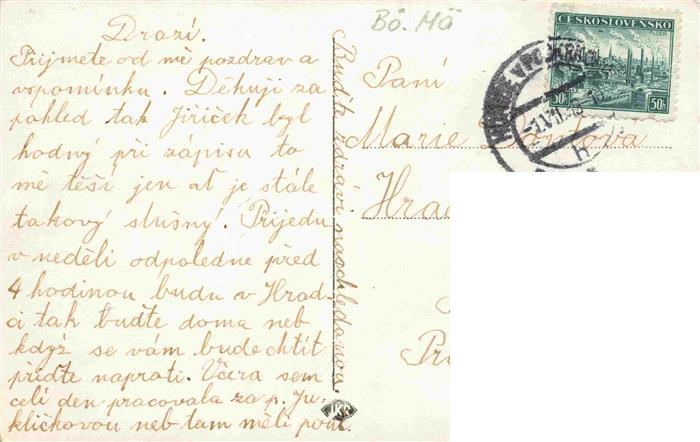 Drazí.
Přijmete od mě pozdrav a
vspomínku. Děkuji za
pohled tak Jiříček byl
hodný při zápisu to
mě těší jen ať je stále
takový slušný. Přijedu
v neděli odpoledne před
4 hodinou budu v Hrad-
ci tak buďte doma neb
když se vám bude chtít
přiďte naprati. Včera sem
celi den pracovala za p. Ju-
kličkovou neb tam měli pout.
Buďte zdrávi naschledanou.
Bö. Mö
Paní
Marie
Hrad
ČESKOSLOVENSKO
PLZEŇ
50h 50h
JKO